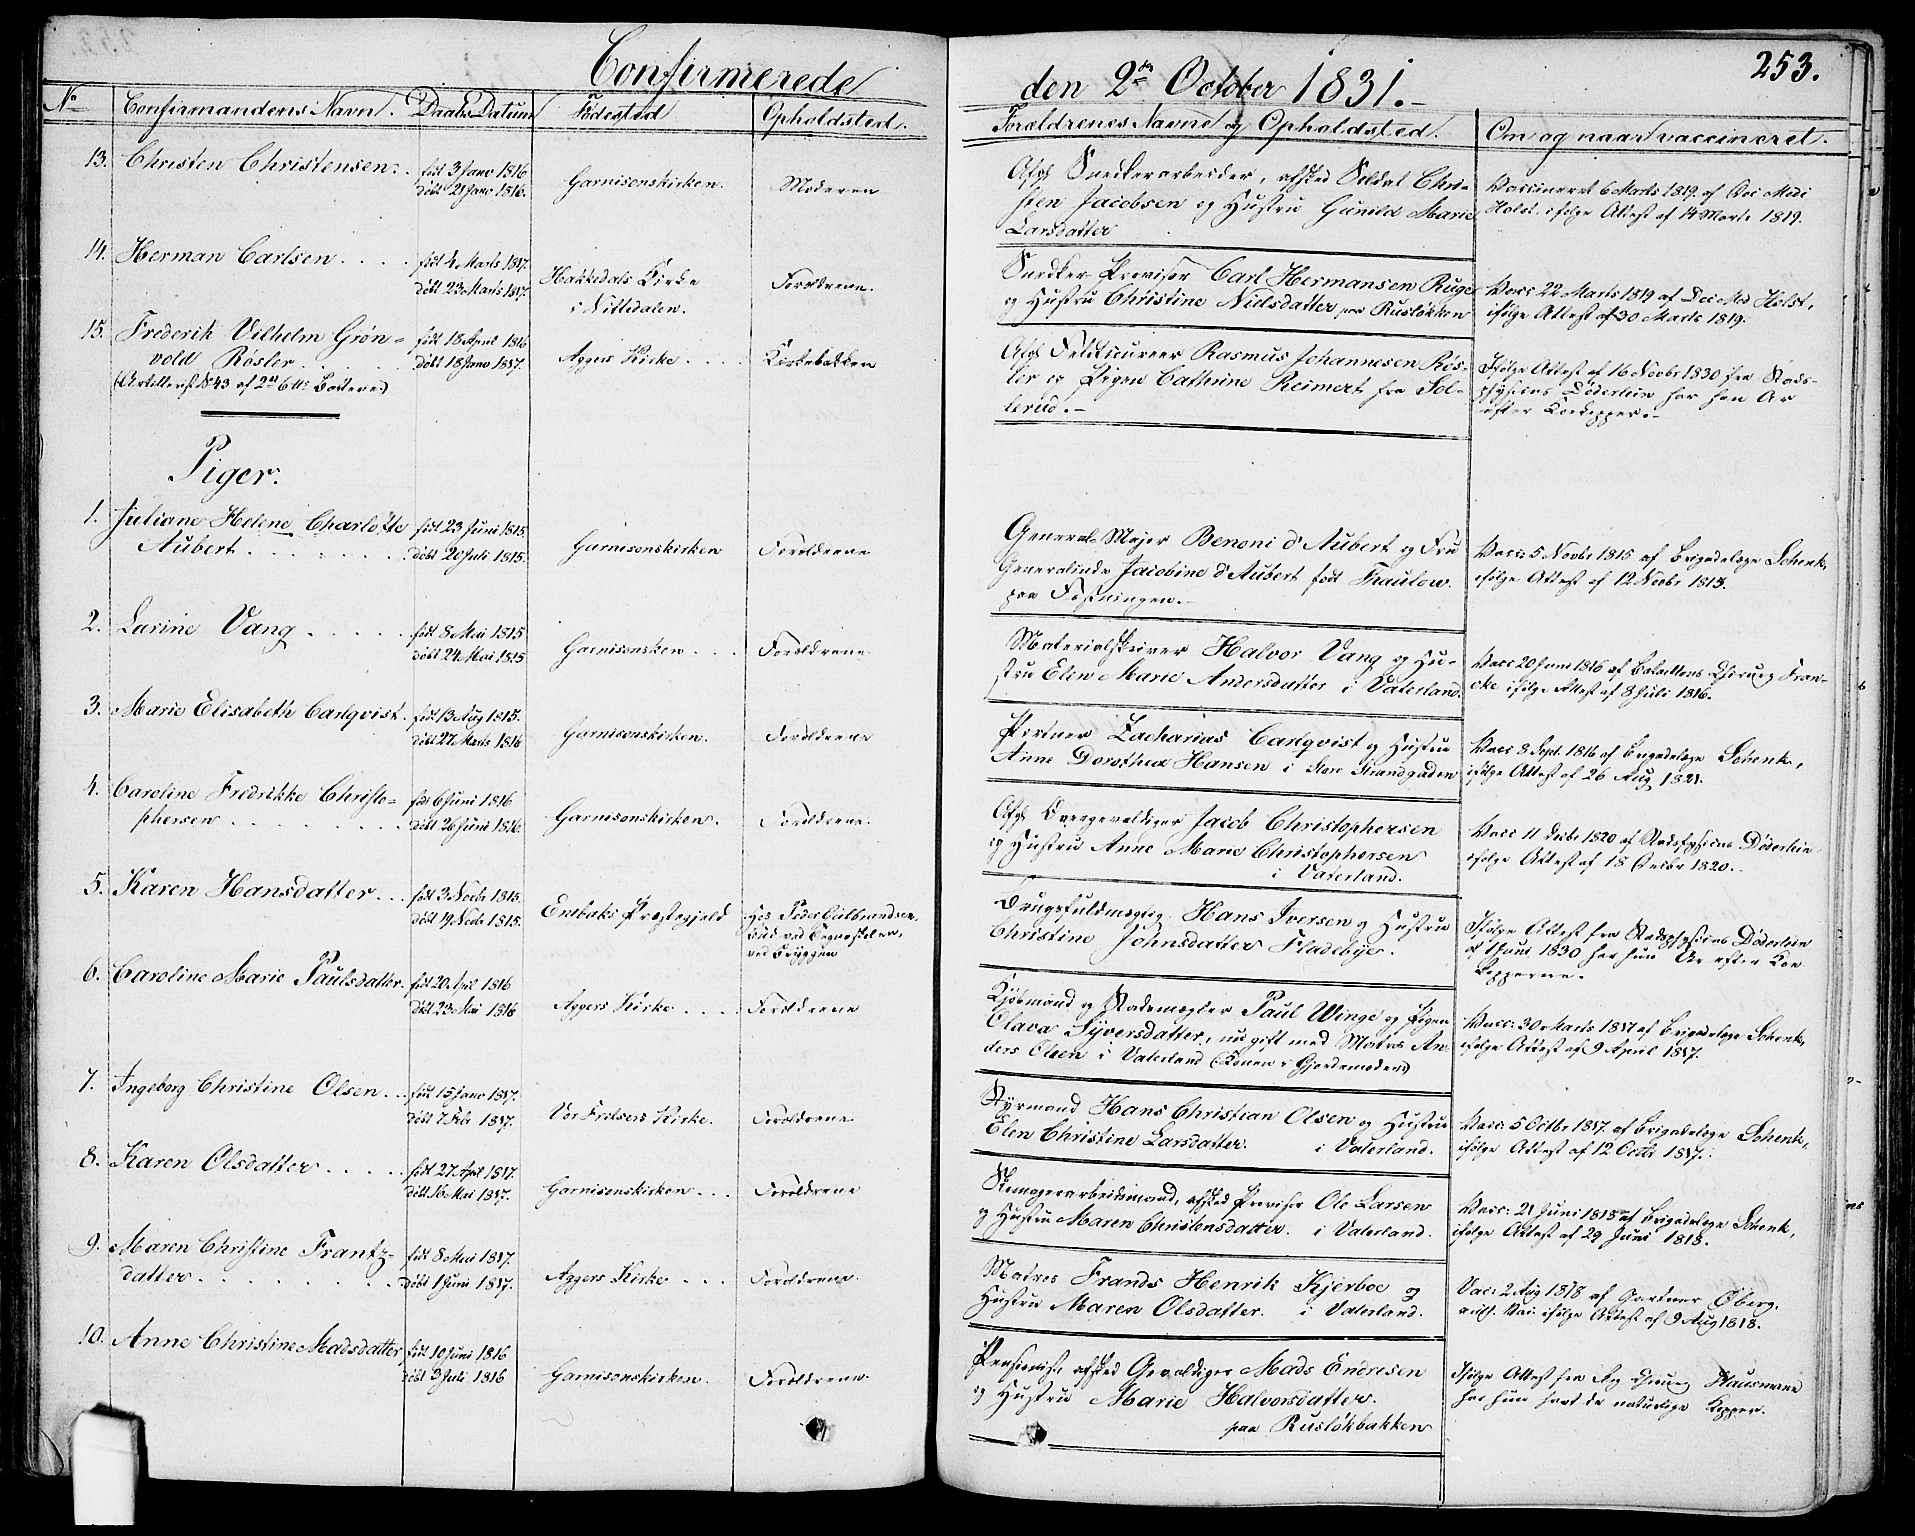 Confirmerede den 2den October 1831.
253.
No Confirmandens Navn. Daabs Datum Fødested Opholdsted. Forældrenes Navne og Opholdsted. Om og naar vaccineret.
13. Christen Christensen. født 3 Janv 1816
døbt 21 Janv 1816. Garnisonskirken. Moderen
Afgl Snedkerarbeider, afsked Soldat Chri-
sten Jacobsen og Hustru Gunild Marie
Larsdatter
Vaccineret 6 Marts 1819 af Doc Medi
Holst. ifølge Attest af 14 Marts 1819.
14. Herman Carlsen . . . . født 4 Marts 1817.
døbt 23 Marts 1817. Hakkedals Kirke
i Nittedalen. Forældrene.
Snedker Provisor Carl Hermansen Ruge
og Hustru Christine Nielsdatter paa Rusløkken
Vacc 22 Marts 1819 af Doc Med Holst,
ifølge Attest af 30 Marts 1819.
15. Frederik Vilhelm Grøn-
vold Rösler . . . . født 18 April 1816
døbt 18 Janv 1817. Aggers Kirke . . . . Kirkebakken
(Artillerist No 43 af 2det 6 ttes Batterie)
Afgl Feldtscureer Rasmus Johannesen Rös-
ler og Pigen Cathrine Reimert fra Sol-
lerud.
Ifølge Attest af 16 Novbr 1830 fra Stads-
physicus Døderlein har han Ar
efter Kokopper.
Piger.
1. Juliane Helene Charlotte
Aubert . . . . født 23 Juni 1815.
døbt 20 Juli 1815. Garnisonskirken Forældrene
General-Major Benoni d'Aubert og Fru
Generalinde Jacobine d'Aubert født Thaulow
paa Fæstningen.
Vacc: 5 Novbr 1815 af Brigadelæge Schenk,
ifølge Attest af 12 Novbr 1815.
2. Larine Vang . . . . født 8 Mai 1815
døbt 24 Mai 1815 Garnisonsken . . . Forældrene
Materialskriver Halvor Vang og Hu-
stru Elen Marie Andersdatter i Vaterland.
Vacc 20 Juni 1816 af Bataillons Chirurg Fran-
cke ifølge Attest af 8 Juli 1816.
3. Marie Elisabeth Carlqvist. født 13 Aug 1815.
døbt 27 Marts 1816 Garnisonskirken. Forældrene
Portner Zacharias Carlqvist og Hustru
Anne Dorothea Hansen i Store Strandgaden
Vacc 8 Sept. 1816 af Brigadelæge Schenk,
ifølge Attest af 26 Aug 1821.
4. Caroline Fredrikke Christo-
phersen . . . . født 6 Juni 1816
døbt 26 Juni 1816. Garnisonskirken. Forældrene.
Afgl Jacob Christophersen
og Hustru Anne Marie Christophersen
i Vaterland.
Vacc 11 Decbr 1820 af Stadsfysicus Døderlein
ifølge Attest af 18 Decbr 1820.
5. Karen Hansdatter . . . født 3 Novbr 1815.
døbt 19 Novbr 1815. Enebaks Præstegjeld Hos Peder Gulbrandsen
ved
ved Bryggen
Brugsfuldmægtig Hans Iversen og Hustru
Christine Johnsdatter Fladebye.
Ifølge Attest fra Stadsphysicus Døderlein
af 1 Juni 1830 har hun Ar efter Ko-
kopperne.
6. Caroline Marie Paulsdatter. født 20 April 1816
døbt 23 Mai 1816 Aggers Kirke . . . . Forældrene
Kjøbmand og Stadsmægler Paul Winge og Pigen
Olava Syversdatter, nu gift med Matros An-
ders Olsen i Vaterland (Konen er Gjordemoder)
Vacc: 30 Marts 1817 af Brigadelæge Schenk,
ifølge Attest af 9 April 1817.
7. Ingeborg Christine Olsen . . født 15 Janv 1817.
døbt 7 Febr 1817. Vor Frelsers Kirke. Forældrene
Styrmand Hans Christian Olsen og Hustru
Elen Christine Larsdatter. i Vaterland.
Vacc: 5 Octbr 1817. af Brigadelæge Schenk,
ifølge Attest af 12 Octbr 1817.
8. Karen Olsdatter . . . . født 27 April 1817.
døbt 16 Mai 1817. Garnisonskirken . . . Forældrene
Skomagerarbeidsmand, afsked Provisor Ole Larsen
og Hustru Maren Christensdatter. i Vaterland.
Vacc: 21 Juni 1818 af Brigadelæge Schenk,
ifølge Attest af 29 Juni 1818.
9. Maren Christine Frantz-
datter . . . . født 8 Mai 1817.
døbt 1 Juni 1817. Aggers Kirke . . . Forældrene.
Matros Frands Henrik Kjerboe og
Hustru Maren Olsdatter. i Vaterland.
Vac: 2 Aug 1818 af Gartner Øberg,
auth. Vac: ifølge Attest af 9 Aug 1818.
10. Anne Christine Madsdatter født 10 Juni 1816
døbt 3 Juli 1816 Garnisonskirken. Forældrene.
Pensionist afsked Gevaldiger Mads Endresen
og Hustru Marie Halvorsdatter.
paa Rusløkbakken
Ifølge Attest fra Chirurg Klausmann
har hun havt de naturlige Kopper.